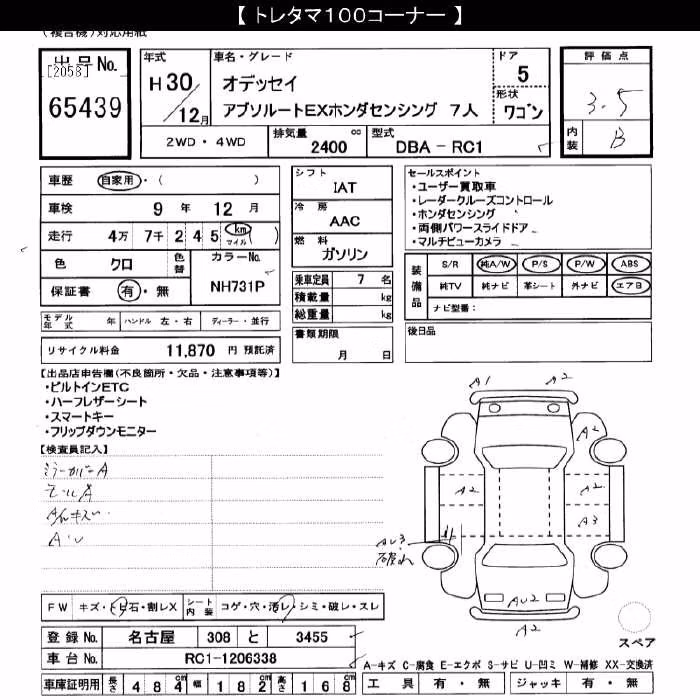 【 トレタマ100コーナー 】
(複合機)対応用紙
出品No.
[2058]
65439
年式
H30/12月
車名・グレード
オデッセイ
アブソルートEXホンダセンシング 7人
ドア
5
形状
ワゴン
2WD・4WD
排気量 cc
2400
型式
DBA-RC1
評価点
3.5
内装
B
車歴 自家用・( )
車検 9年 12月
走行 4万 7千 2 4 5 km マイル ( )
色 クロ
色替
カラーNo.
NH731P
保証書 有・無
モデル年式 年 ハンドル 左・右 ディーラー・並行
リサイクル料金 11,870 円 預託済
シフト
IAT
冷房
AAC
燃料
ガソリン
乗車定員 7 名
積載量 kg
総重量 kg
書類期限
月 日
セールスポイント
・ユーザー買取車
・レーダークルーズコントロール
・ホンダセンシング
・両側パワースライドドア
・マルチビューカメラ
装備品
S/R 純A/W P/S P/W ABS
純TV 純ナビ 革シート 外ナビ エアB
ナビ型番:
後日品
【出品店申告欄(不良箇所・欠品・注意事項等)】
・ビルトインETC
・ハーフレザーシート
・スマートキー
・フリップダウンモニター
【検査員記入】
ミラーカバーA
モールA
A・U
A1
A2
A2
A2
A2
A3
AU3
AU2
A2
FW キズ・トビ石・割レX
シート内装 コゲ・穴・汚レ・シミ・破レ・スレ
登録No. 名古屋 308 と 3455
車台No. RC1-1206338
車庫証明用 長さ 484 幅 182 高さ 168
スペア
A-キズ C-腐食 E-エクボ S-サビ U-凹ミ W-補修 XX-交換済
工具 有・無 ジャッキ 有・無